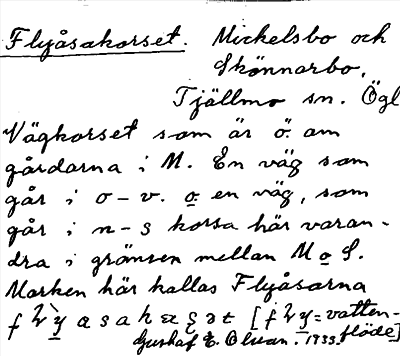 Flyåsakorset. Mickelsbo och
Skönnarbo,
Tjällmo sn. Ögl
Vägkorset som är ö. om
gårdarna i M. En väg som
går i o-v. o en väg, som
går i n-s korsa här varan-
dra i gränsen mellan M o S.
Marken här kallas Flyåsarna
[f = vatten-
flöde]
1933.